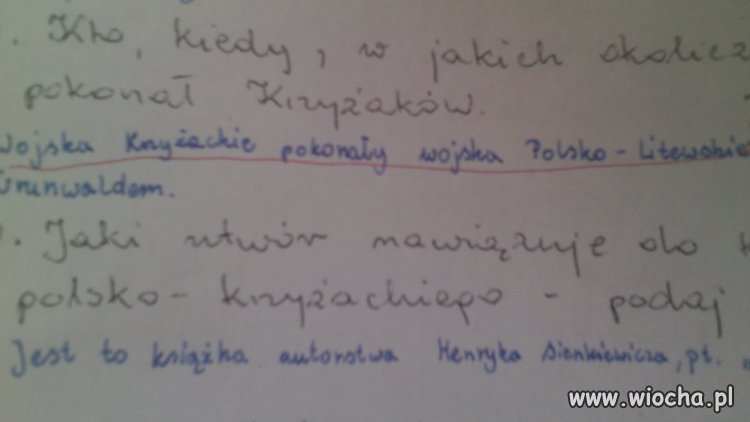 . Kto, kiedy, w jakich okolicz
pokonał Krzyżaków.
Wojska Krzyżackie pokonały wojska Polsko-Litewskie
Grunwaldem.
. Jaki utwór nawiązuje do
polsko-krzyżackiego - podaj
Jest to książka autorstwa Henryka Sienkiewicza, pt. „
www.wiocha.pl